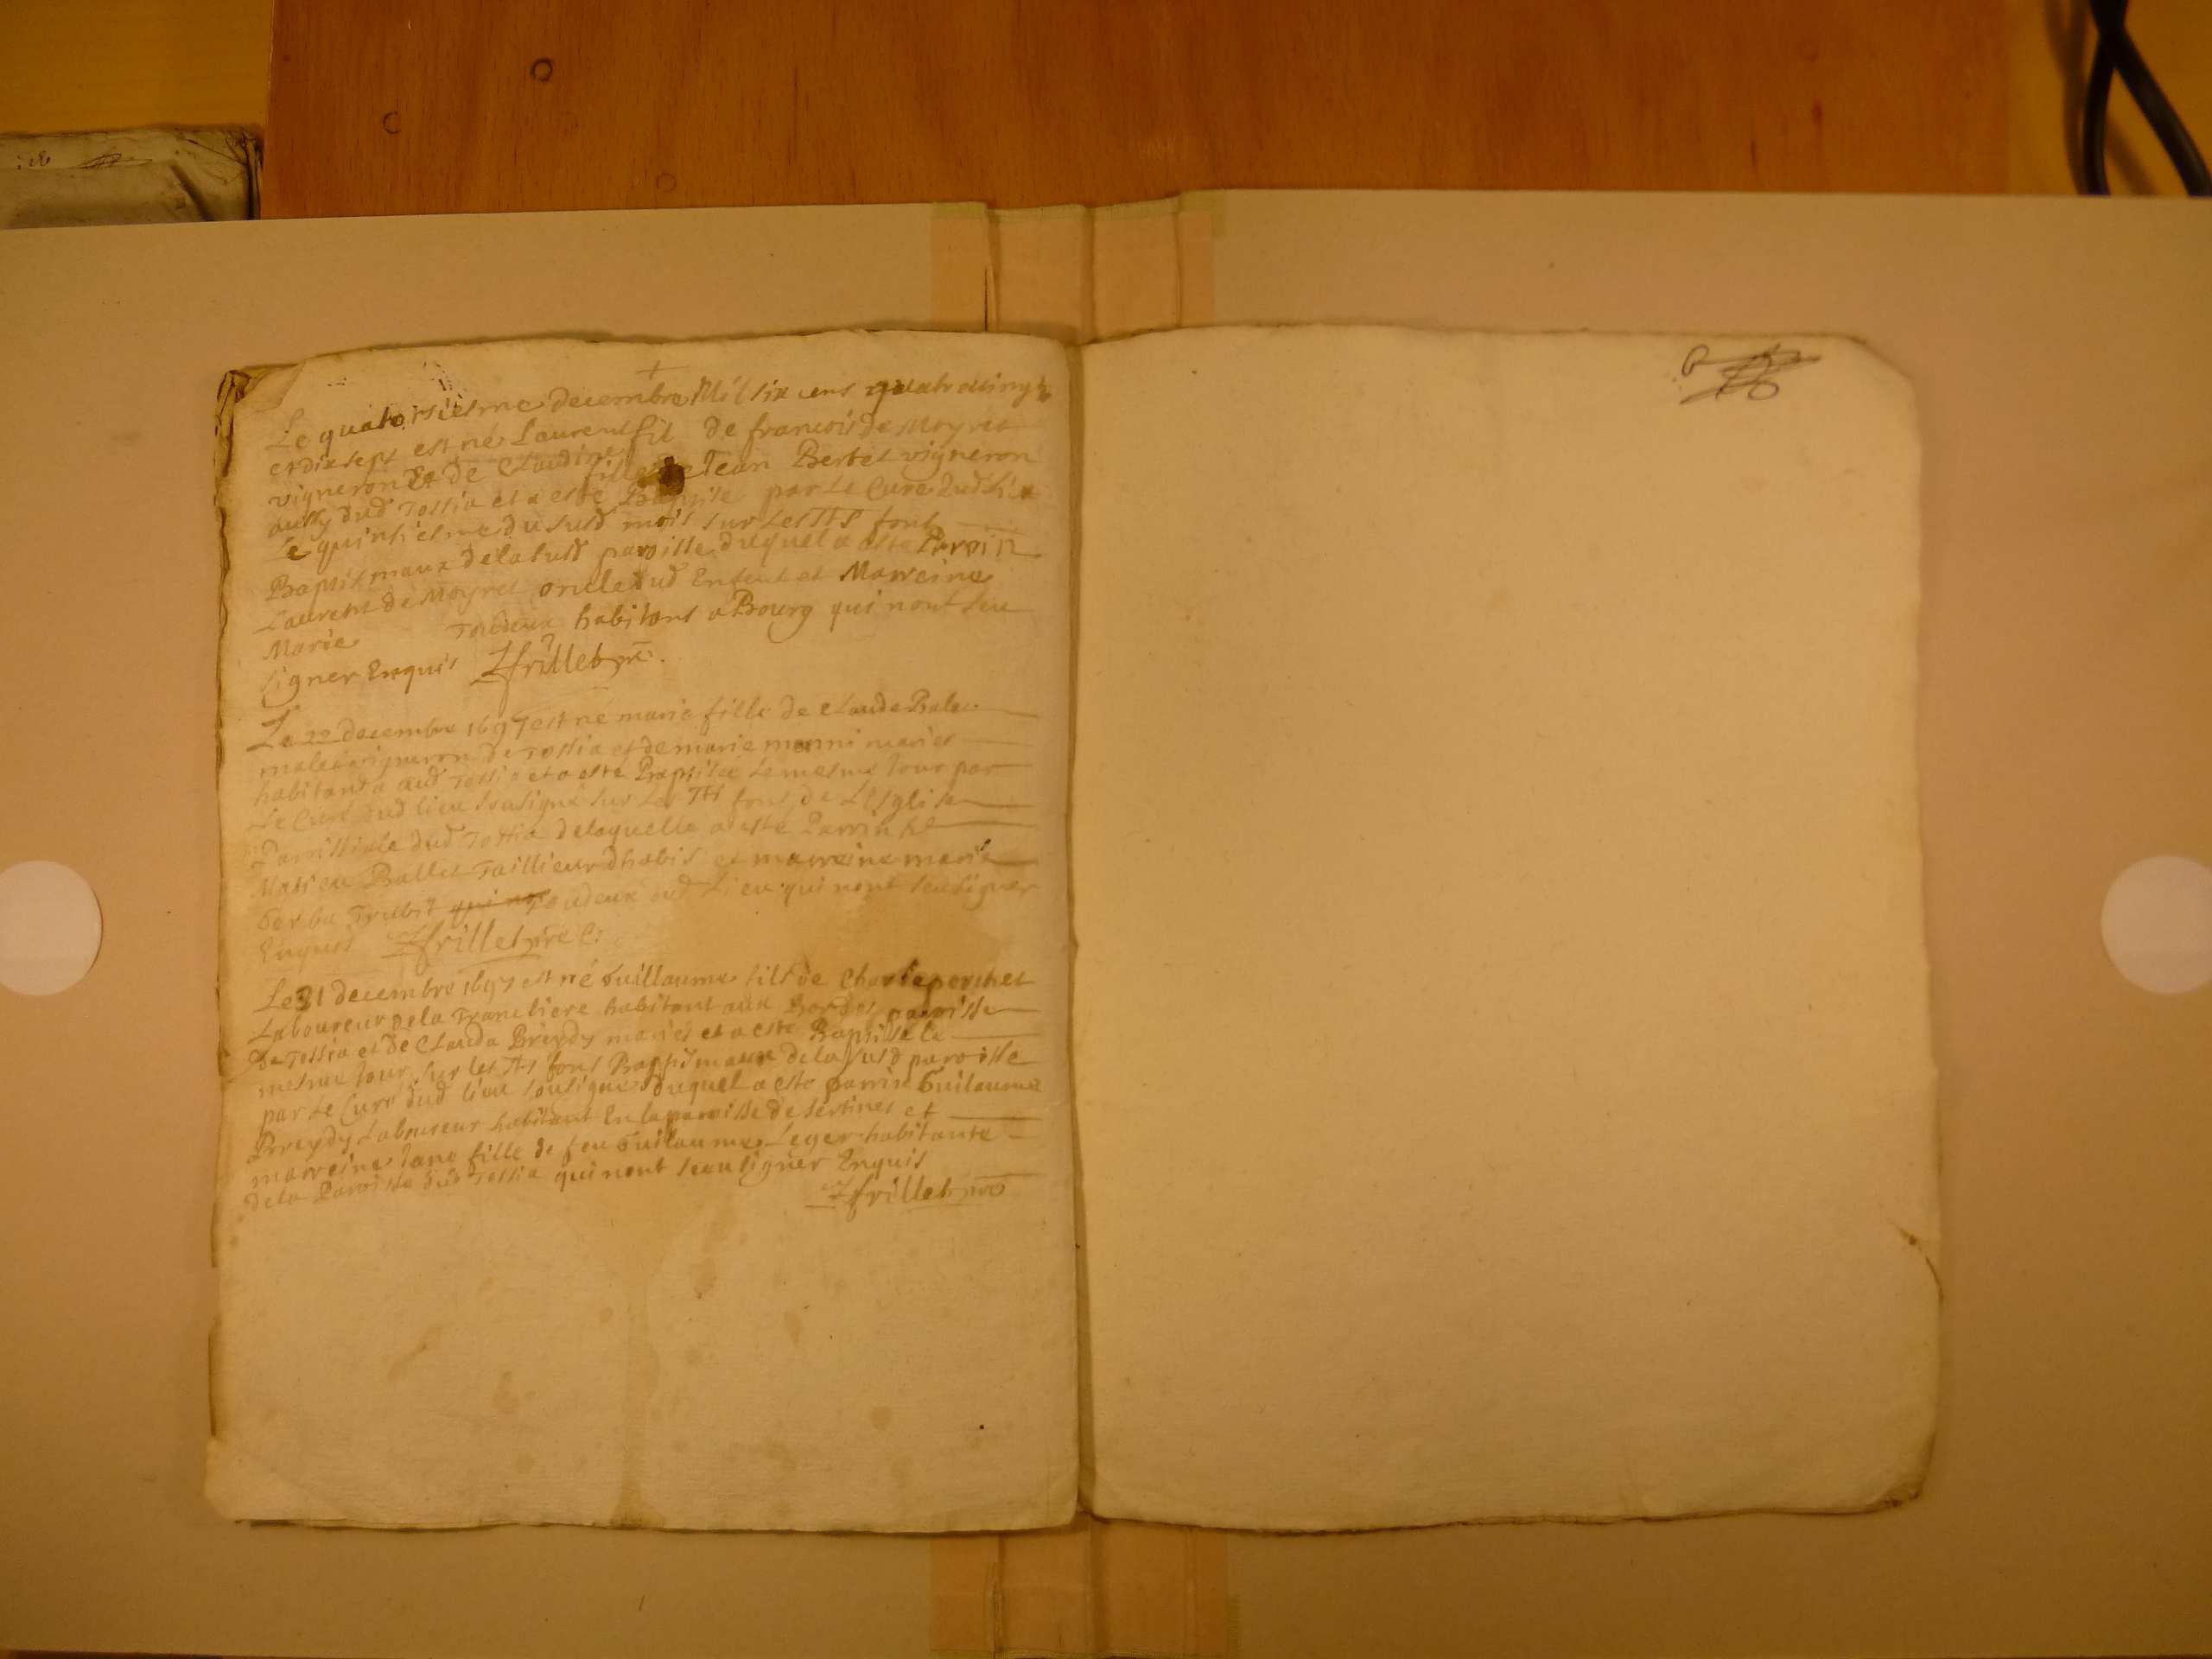 Le quatorsiesme decembre Mil six cens quatrevingt
et dix sept est né Laurent fil de francois de Moyret
vigneron Et de Claudine fille de Jean Bertet vigneron
aussy dud Tossia et a esté Baptisé par Le Curé dud Lieu
Le quinsiesme du susd mois sur Les Sts fonts
Baptismaux de la susd paroisse duquel a esté Parrin
Laurent de Moyret oncle dud Enfent et Marreine
Marie Tousdeux habitans a Bourg qui nont seu
signer Enquis frillet pre
Le 22 decembre 1697 est né marie fille de Claude
vigneron de Tossia et de marie monni mariés
habitant a aud Tossia et a esté Baptisée Le mesme Jour par
Le Curé dud lieu sousigné sur Les Sts fons de LEsglise
Parrissialle dud Tossia de laquelle a esté Parrin
Matieu Ballet Taillieur dhabis et marreine marie
Tousdeux dud Lieu qui nont seu signer
Enquis frillet pre C
Le 31 decembre 1697 est né Guillaume fils de Charle perchet
Laboureur de la Trancliere habitant aux Bordes paroisse
De Tossia et De Clauda Breydy mariés et a esté Baptissé le
mesme Jour sur les Sts fons Baptismaux de la susd paroisse
par Le Curé dud lieu sousigné duquel a esté parrin Guilaume
Breydy Laboureur habitant En la paroisse de Sertines et
marreine Jane fille de feu Guilaume Leger habitante
de la Paroisse dud Tossia qui nont seeu signer Enquis
frillet pre
6